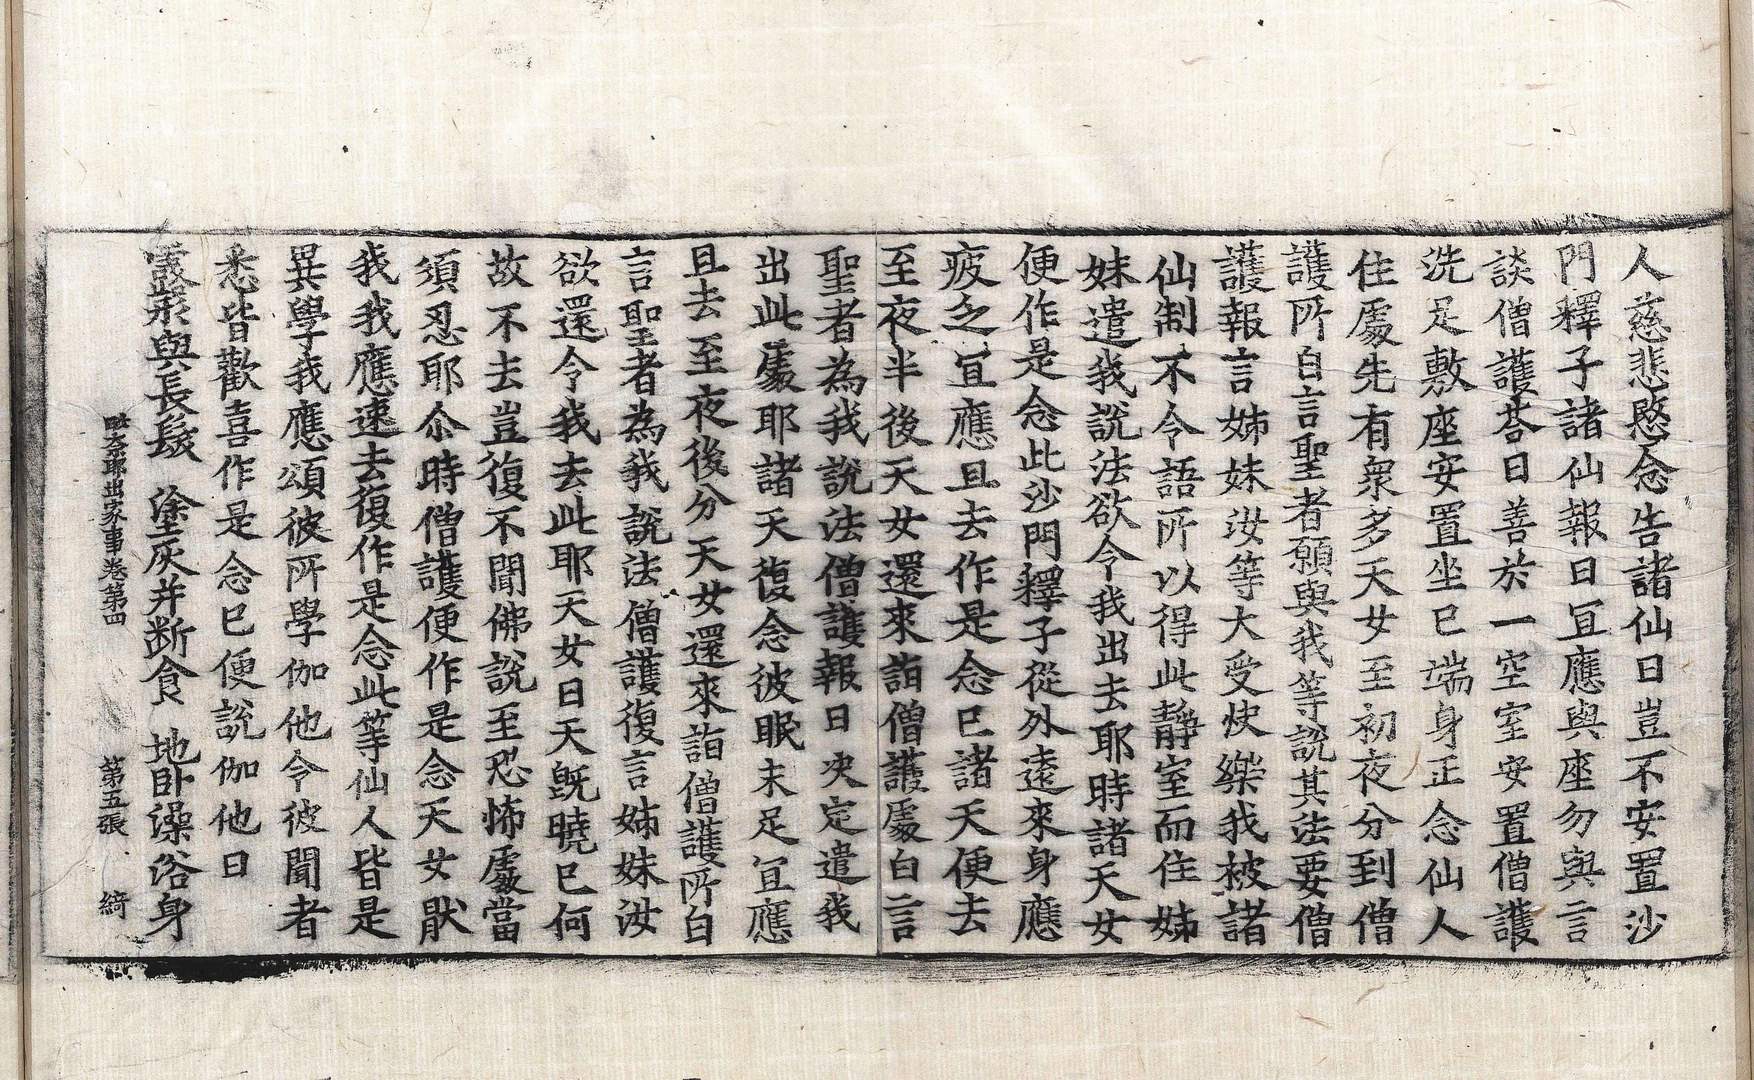 人慈悲愍念告諸仙曰豈不安置沙
門釋子諸仙報曰冝應與座勿與言
談僧護荅曰善於一空室安置僧護
洗足敷座安置坐已端身正念仙人
住處先有衆多天女至初夜分到僧
護所白言聖者願與我等說其法要僧
護報言姊妹汝等大受快樂我被諸
仙制不令語所以得此靜室而住姊
妹遣我說法欲令我出去耶時諸天女
便作是念此沙門釋子從外遠來身應
疲乏冝應且去作是念已諸天便去
至夜半後天女還來詣僧護處白言
聖者為我說法僧護報曰决定遣我
出此處耶諸天復念彼眠未足冝應
且去至夜後分天女還來詣僧護所白
言聖者為我說法僧護復言姊妹汝
欲還令我去此耶天女曰天旣曉已何
故不去豈復不聞佛說至恐怖處當
須忍耶尒時僧護便作是念天女猒
我我應速去復作是念此等仙人皆是
異學我應頌彼所學伽他令彼聞者
悉皆歡喜作是念已便說伽他曰
露形與長䰅　塗灰并断食　地卧澡浴身
毗奈耶出家事卷第四　第五張　綺